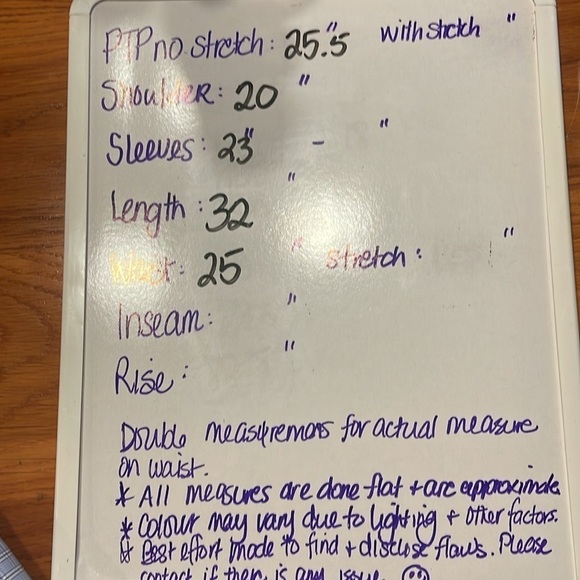 PTP no stretch: 25.5" with stretch "
Shoulder: 20 "
Sleeves: 23" - "
Length: 32 "
Waist: 25 " stretch: "
Inseam: "
Rise: "
Double measurements for actual measure
on waist.
* All measures are done flat + are approximate.
* Colour may vary due to lighting + other factors.
* Best effort made to find + disclose flaws. Please
contact if there is any issue. ☺